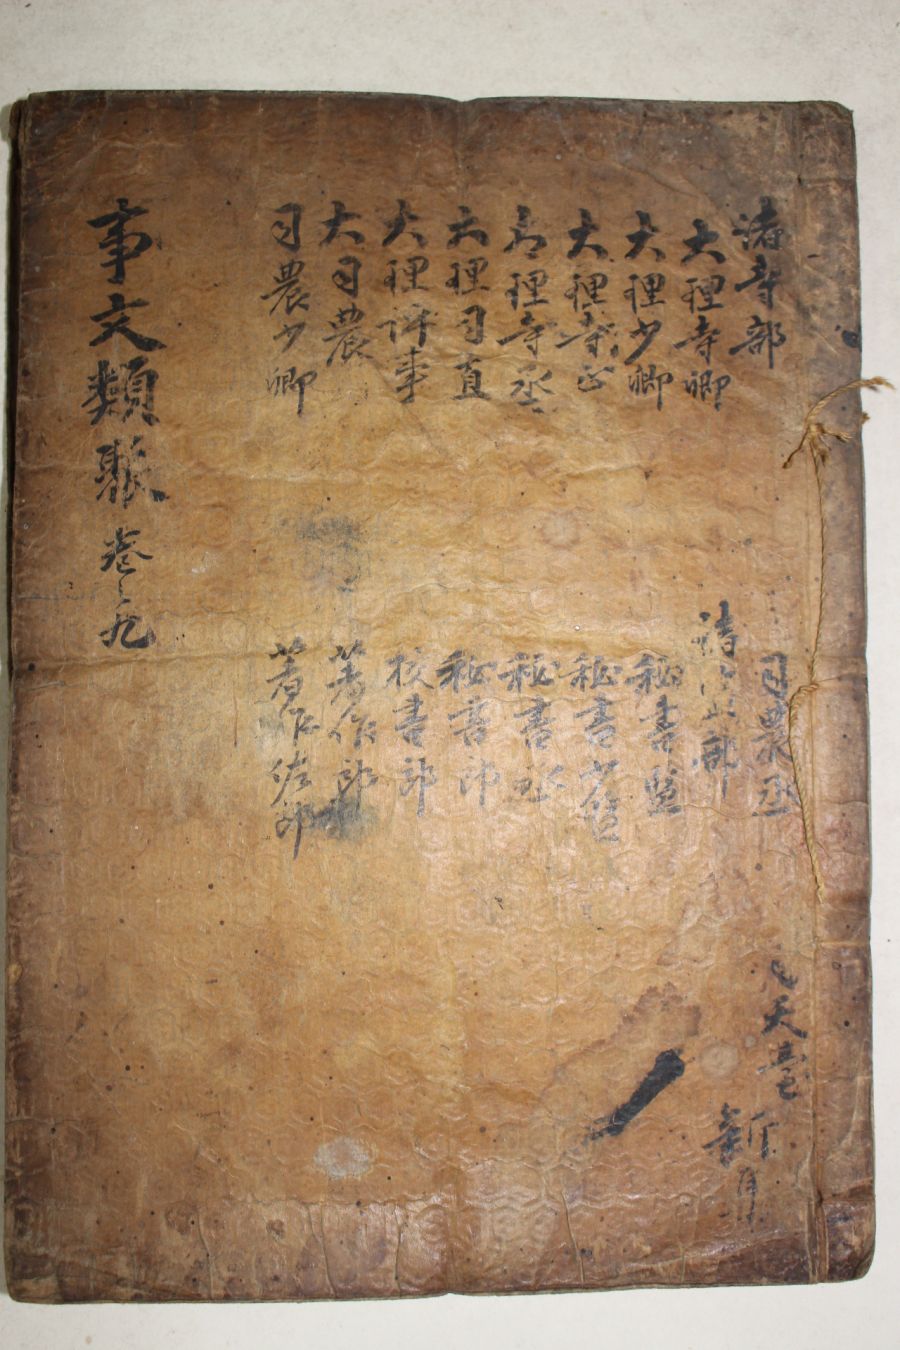 事文類聚 卷之九
諸寺部
大理寺卿
大理少卿
大理寺正
大理寺丞
大理司直
大理評事
大司農
司農少卿
司農丞
諸監部
秘書監
秘書少監
秘書丞
秘書郎
校書郎
著作郎
著作佐郎
天臺
新